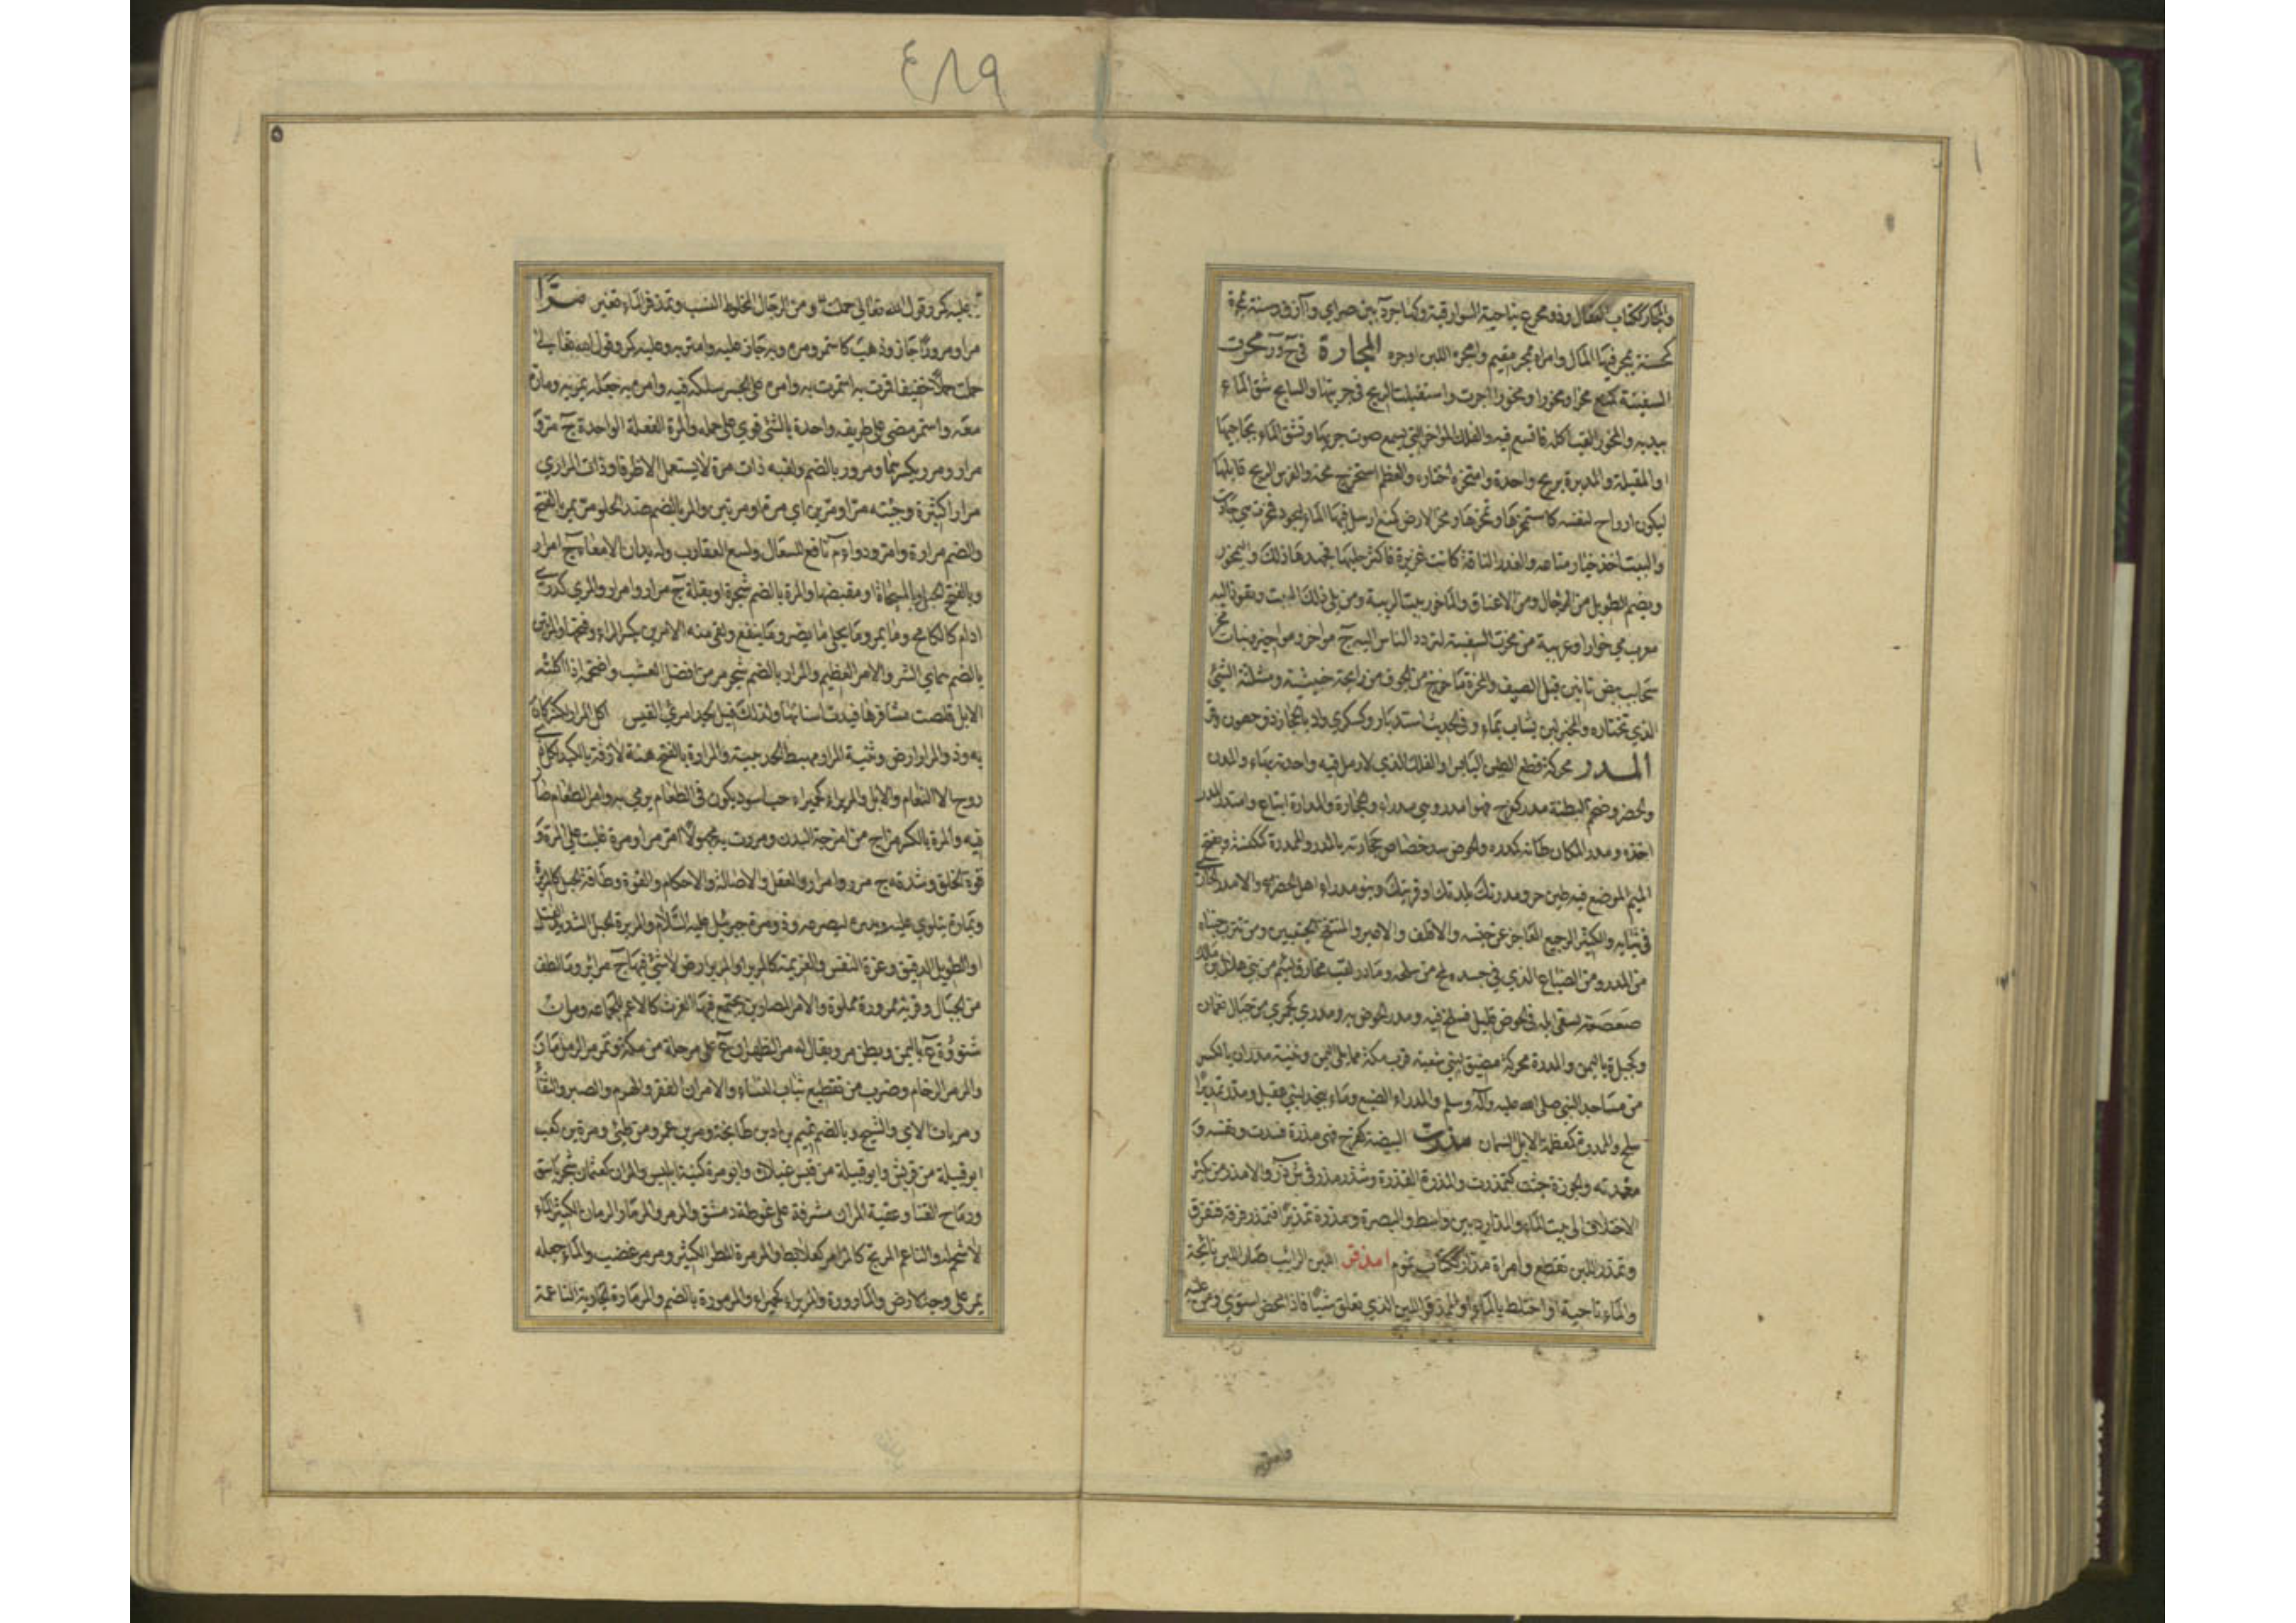 ٤٨٩
والمجار ككتاب العقال وذو مجر ع بناحية السوارقية وكهاجرة بين وآزر وسنة مجرة
كمحسنة يمجر فيها المال وامراة مجر متيم وامجره اللبن اوجره المجارة في ح ور مخرت
السفينة كمنع مخرا ومخورا جرت واستقبلت الريح في جريتها والسابح شق الماء
بيديه والمحور القب اكله فاتسع فيه والفلك المواخر التي يسمع صوت جريها او تشق الماء بجآجئها
او المقبلة والمدبرة بريح واحدة وامتخره اختاره والعظم استخرج مخه والفرس الريح قابلها
ليكون اروح لنفسه كاستمخرها وتمخرها ومخر الارض كمنع ارسل فيها الماء لتجود فمخرت هي جادت
والبيت اخذ خيار متاعه والغزر الناقة كانت غزيرة فاكثر حلبها فجهدها ذلك واليمخور
ويضم الطويل من الرجال ومن الاعناق والماخور بيت الريبة ومن يلي ذلك البيت ويقود اليه
معرب مي خوار او عربية من مخرت السفينة لتردد الناس اليه ج مواخر ومواخير وبنات مخر
سحايب بيض تاتين قبل الصيف والمخرة ما خرج من الجوف من رايحة خبيثة ومثلثة الشئ
الذي تختاره والمخير لبن يشاب بماء وفي الحديث استمخروا وكسكرى واد بالحجاز ذو حصون وقرى
المدر محركة قطع الطين اليابس او العلك الذي لا رمل فيه واحدته بهاء والمدن
والحضر وضخم البطنة مدر كفرح فهو امدر وهي مدراء والحجارة والمدارة اتباع وامتدر المدر
اخذه ومدر المكان طانه كمدره والحوض سد خصاص حجارته بالمدر والممدرة كمكنسة وتفتح
الميم الموضع فيه طين حر ومدرتك بلدتك او قريتك وبنو مدراء اهل الحضر والامدر الخارئ
في ثيابه والكثير الرجيع العاجز عن حبسه والاقلف والاغبر والمنتفخ الجنبين ومن تترب جنباه
من المدر ومن الضباع الذي في جسده لمع من سلحه ومادر لقب مخارق لئيم من بني هلال بن مالك
صعصعة سقى ابله في الحوض قليل فسلح فيه ومدر الحوض به ومدري كجمزي من جبال نعمان
وكجبلة باليمن والمدرة محركة مضيق لبني شعبة قرب مكة مما يلي اليمن وثنية مدران بالكسر
من مساجد النبي صلى الله عليه وآله وسلم والمدراء الضبع وماء بنجد لبني عقيل ومدر تمديرا
سلح والمدرة كمعظمة الابل السمان مذرت البيضة كفرح فهي مذرة فسدت ونفسه و
معدته والجوزة خبثت كتمذرت والمذرة القذرة وشذر مذر في ش ذ ر والامذر من يكثر
الاختلاف الى بيت الماء والمذار د بين واسط والبصرة ومذرة تمذيرا فتمذر فرقه فتفرق
وتمذر اللبن تقطع وامراة مذار ككتاب نموم امذقر اللبن الرائب صار اللبن ناحية
والماء ناحية او اختلط بالماء او الممذقر اللبن الذي تعلق شيئا فاذا مخض استوى ومر عليه
وامتر به
عليه كر وقول الله تعالى حملت ومن الرجال المخلوط النسب وتمذقر الماء تغير مرّا
مرا ومرورا جاز وذهب كاستمر ومره وبه جاز عليه وامتر به وعليه كمر وقول الله تعالى
حملت حملا خفيفا فمرت به استمرت به وامره على الجسر سلكه فيه وامره به جعله يمر به وماره
معه واستمر مضى على طريقه واحدة بالشئ قوي على حمله والمرة الفعلة الواحدة ج مر و
مرار ومرر بكسرهما ومرور بالضم ولقيه ذات مرة لا يستعمل الا ظرفا وذات المرار اي
مرارا كثيرة وجئته مرا او مرين اي مرة او مرتين والمر بالضم ضد الحلو مر يمر بالفتح
والضم مرارة وامر ودواء م نافع للسعال ولسع العقارب ولديدان الامعاء ج امرار
وبالفتح الحبل والمسحاة او مقبضها والمرة بالضم شجرة او بقلة ج مر وامرار والمري كدري
ادام كالكامخ وما يمر وما يحلي ما يضر وما ينفع ولقي منه الامرين بكسر الراء وفتحها والمرتين
بالضم اي الشر والامر العظيم والمرار بالضم شجر مر من افضل العشب واضخمه اذا اكلته
الابل قلصت مشافرها فبدت اسنانها ولذلك قيل لجد امرئ القيس اكل المرار لكشر كان
به وذو المرار ارض وثنية المرار مهبط الحديبية والمرارة بالفتح هنة لازقة بالكبد لكل ذي
روح الا النعام والابل والمريراء كحميراء حب اسود يكون في الطعام يرمى به وامر الطعام صار
فيه والمرة بالكسر مزاج من امزجة البدن ومررت به مجهولا امر مرا ومرة غلبت علي المرة و
قوة الخلق وشدته ج مرر وامرار والعقل والاصالة والاحكام والقوة وطاقة الحبل كالمريرة
ويماره يتلوى عليه ويديره ليصرعه وذو مرة جبرئيل عليه السلام والمريرة الحبل الشديد الفتل
او الطويل الدقيق وعزة النفس والعزيمة كالمرير او المرير ارض لا شئ فيها ج مراير وما لطف
من الحبال وقربة ممرورة مملوة والامر المصارين يجتمع فيها الفرث كالاعم للجماعة ومران
شنوءة ع باليمن وبطن مر ويقال له مر الظهران ع على مرحلة من مكة وتمرمر الرمل مار
والمرمر الرخام وضرب من تقطيع ثياب النساء والامران الفقر والهرم والصبر والثفاء
ومريات الاي والشيح وبالضم تميم بن اد بن طابخة ومر بن عمرو من طيئ ومرة بن كعب
ابو قبيلة من قريش وابو قبيلة من قيس عيلان وابو مرة كنية ابليس والمران كعثمان شجر باسق
ورماح القنا وعقبة المران مشرفة على غوطة دمشق والمرمر والمرمار الرمان الكثير الماء
لا شحم له والناعم المرتج كالمرامر كعلابط والمرمرة المطر الكثير ومرمر غضب والماء جعله
يمر على وجه الارض والمارورة والمريراء كحميراء والمرمورة بالضم والمرمارة الجارية الناعمة